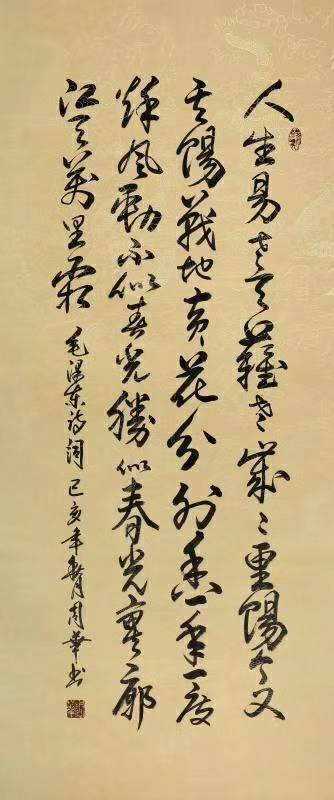 人生易老天難老歲〻重陽今又
重陽戰地黃花分外香一年一度
秋風勁不似春光勝似春光寥廓
江天萬里霜 毛澤東詩詞 己亥年月周華书